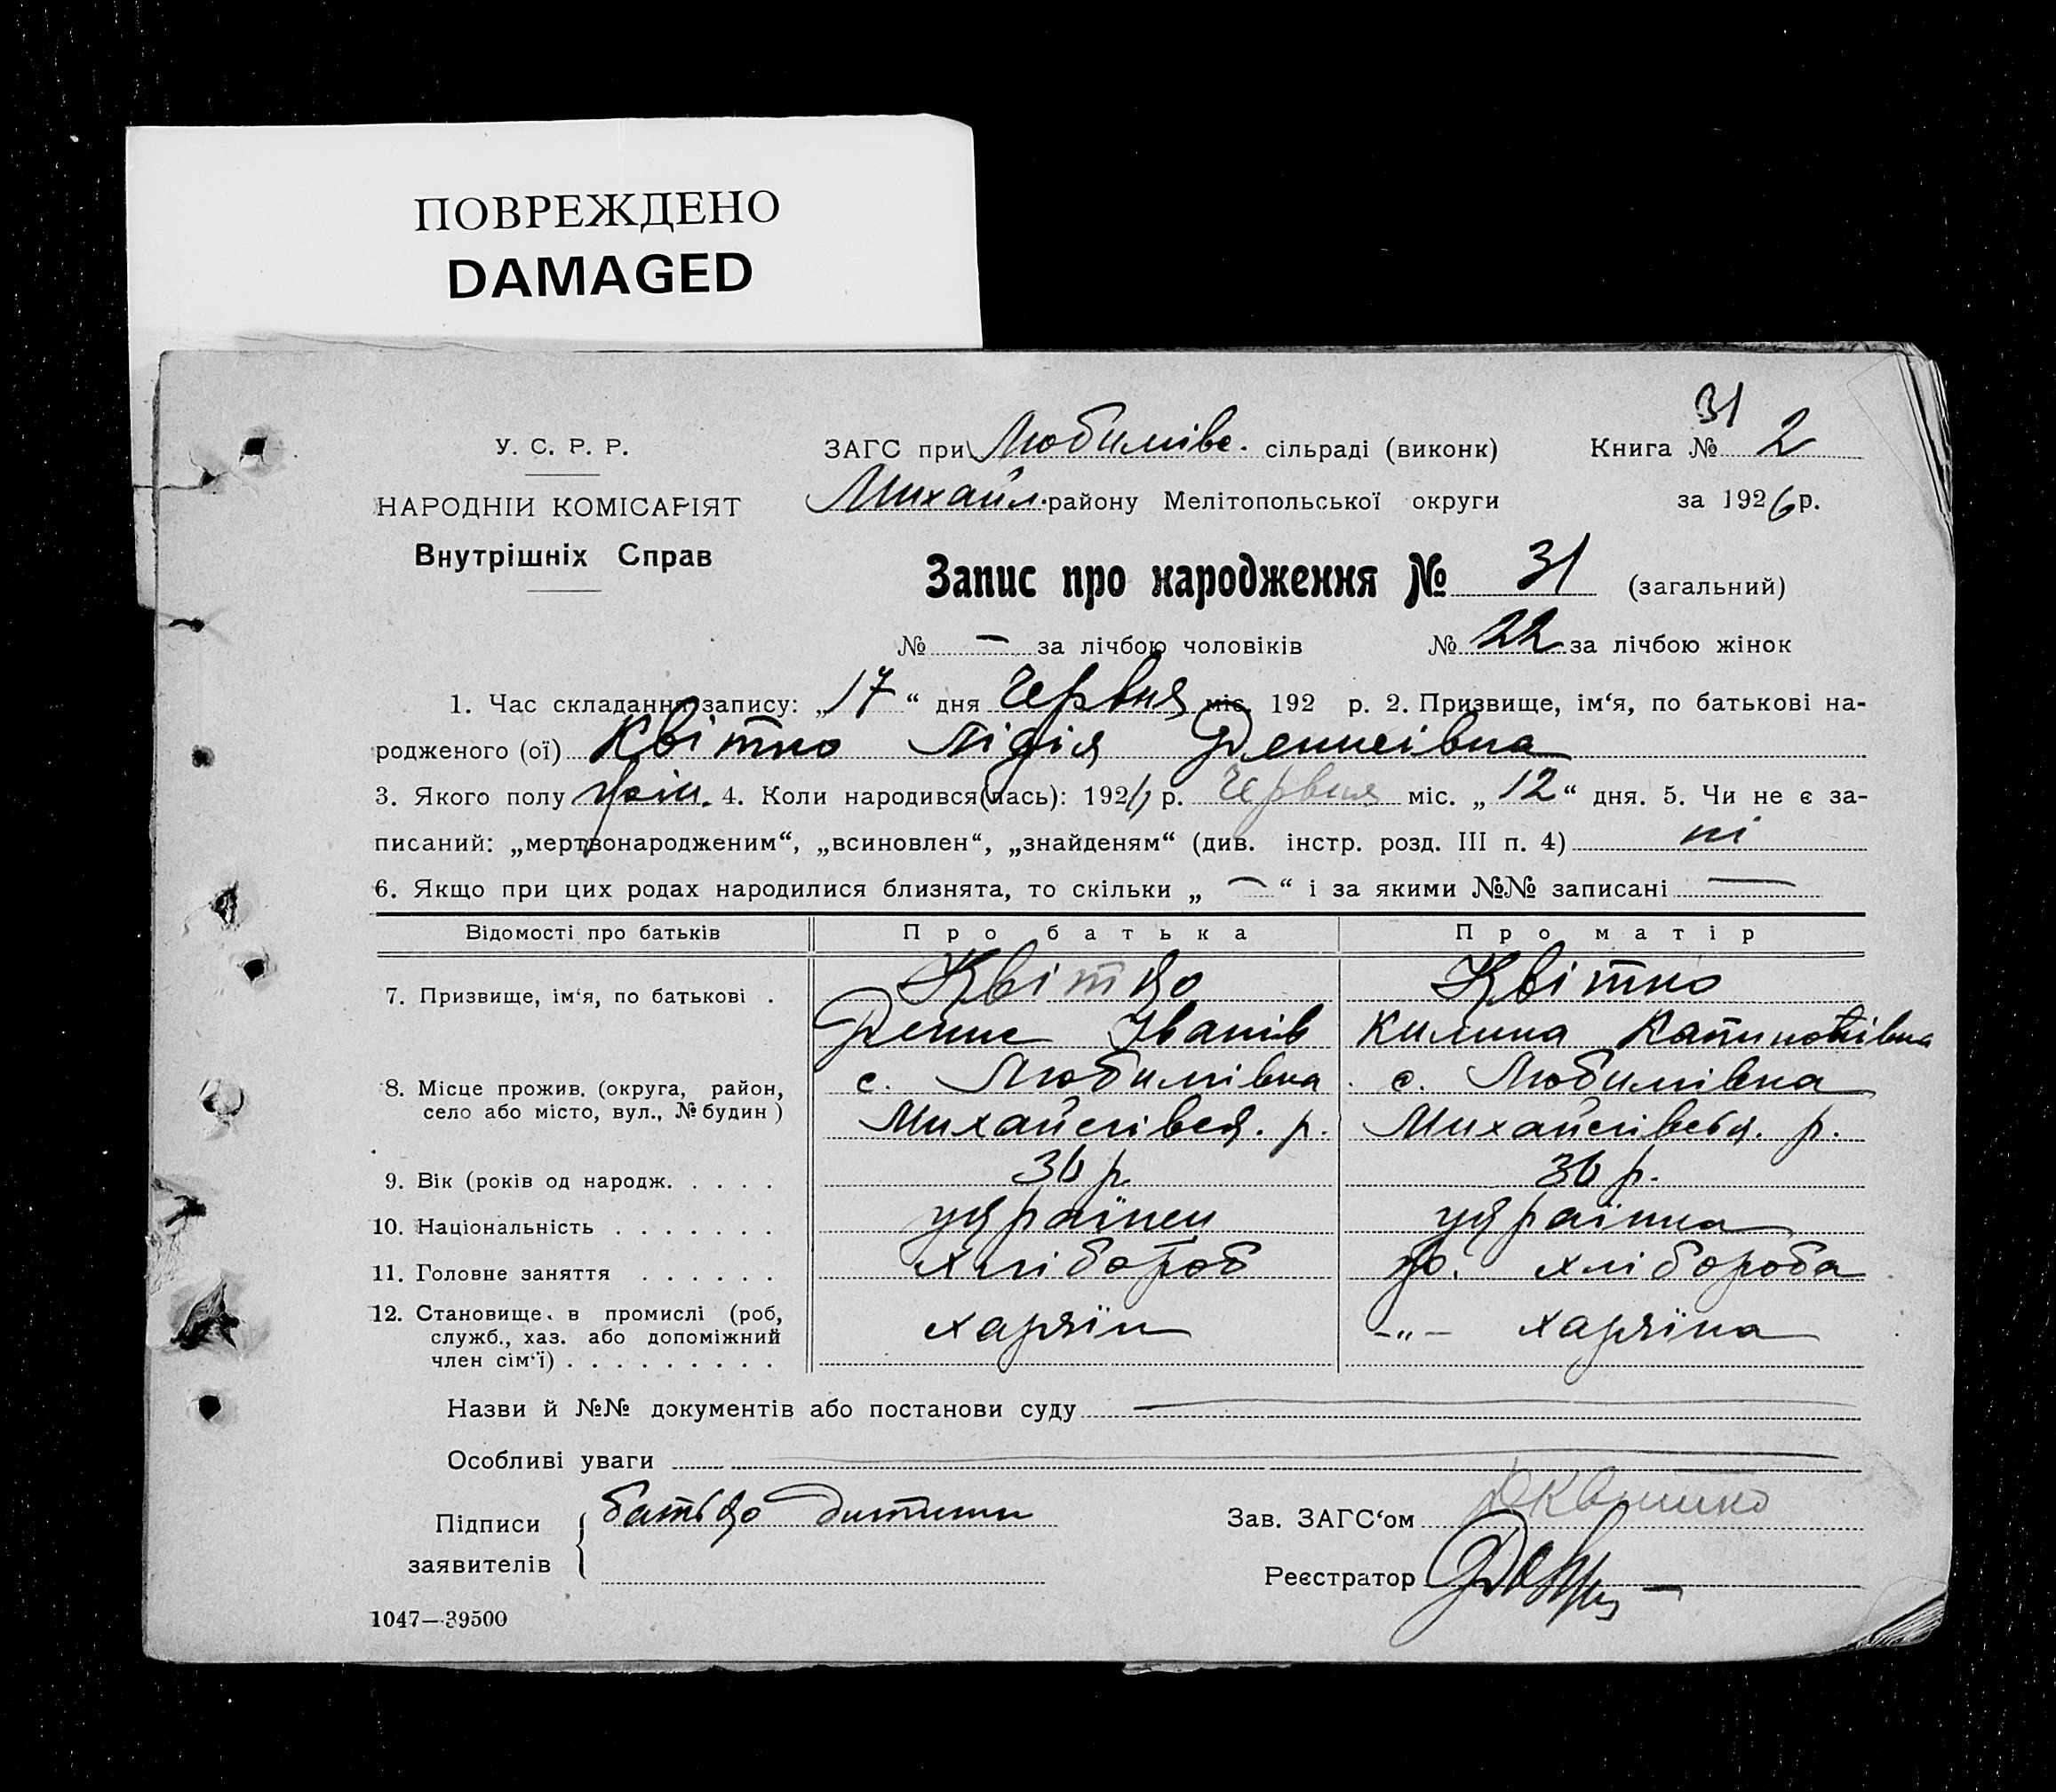 ПОВРЕЖДЕНО
DAMAGED
31
У. С. Р. Р.
НАРОДНІЙ КОМІСАРІЯТ
Внутрішніх Справ
ЗАГС при Любимівс. сільраді (виконк) Книга № 2
Михайл. району Мелітопольської округи за 1926 р.
Запис про народження № 31 (загальний)
№ — за лічбою чоловіків № 22 за лічбою жінок
1. Час складання запису: „17“ дня Червня міс. 192 р. 2. Призвище, ім‘я, по батькові на-
родженого (ої) Квітко Лідія Денисівна
3. Якого полу жін. 4. Коли народився(лась): 1926 р. Червня міс. „12“ дня. 5. Чи не є за-
писаний: „мертвонародженим“, „всиновлен“, „знайденям“ (див. інстр. розд. III п. 4) ні
6. Якщо при цих родах народилися близнята, то скільки „ — “ і за якими №№ записані —
Відомості про батьків Про батька Про матір
7. Призвище, ім‘я, по батькові . Квітко Квітко
Денис Іванів Килина
8. Місце прожив. (округа, район, с. Любимівка с. Любимівка
село або місто, вул., № будин ) Михайлівськ. р. Михайлівськ. р.
9. Вік (років од народж. . . . . 36 р. 36 р.
10. Національність . . . . . . . українец українка
11. Головне заняття . . . . . . хлібороб хлібороба
12. Становище в промислі (роб, хазяїн -„- хазяїна
служб., хаз. або допоміжний
член сім‘ї) . . . . . . . . .
Назви й №№ документів або постанови суду —
Особливі уваги —
Підписи батько дитини Зав. ЗАГС‘ом ДКвитко
заявителів Реєстратор
1047—39500